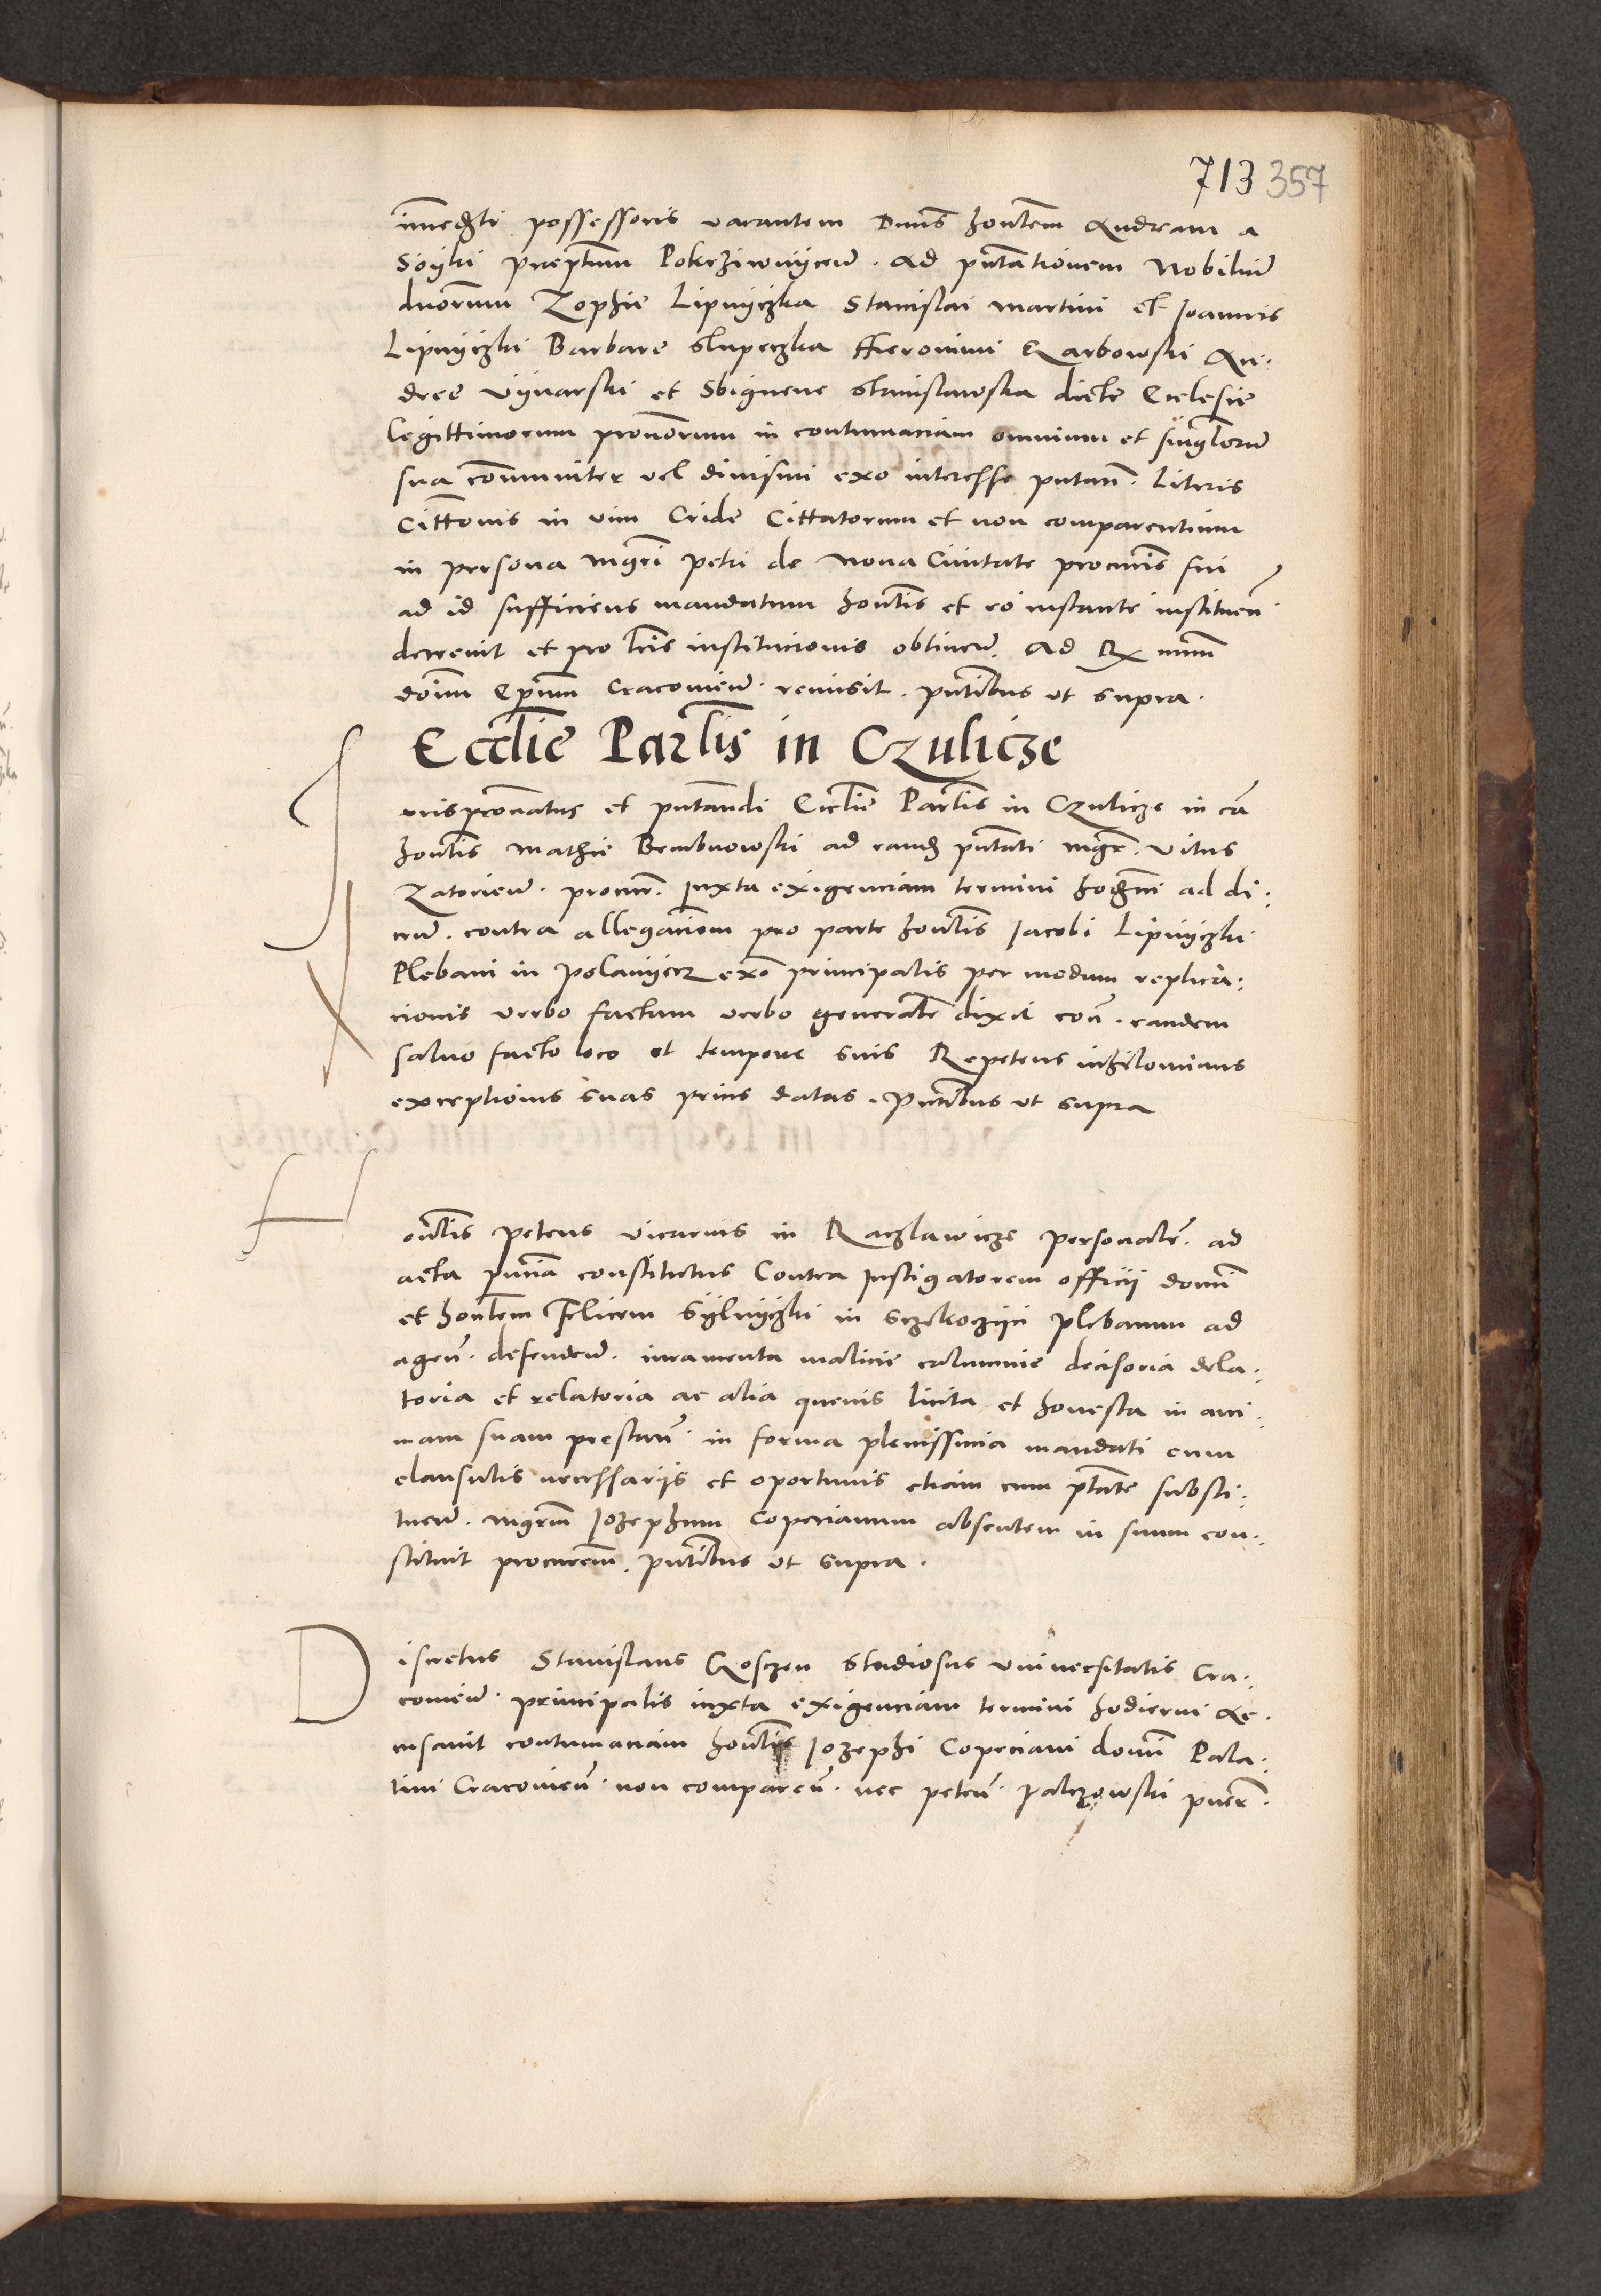 713 357
immediati possessoris vacantem Dnus honlem Andream a
Soyki preptum Pokrziwnycen. ad pntationem Nobilium
duorum Zophie Lipnyczka Stanislai martini et Joannis
Lipnyczki Barbare slupeczka Hieronimi Karbowski An:
dree vynarski et Sbigneue stanislawska dicte Ecclesie
legittimorum pronorum in contumaciam omnium et singlorum
sua coniunter vel diuisim exo interesse putan. literis
Cittonis in vim Cride Cittatorum et non comparentium
in persona mgri petri de Noua Ciuitate procuris sui
ad id sufficiens mandatum hontis et eo instante instituen
decreuit et pro lris institucionis obtinen. ad Rx mum
doim Epum Cracouien. remisit. pntibus vt supra.
Ecclie Parlis in Czulicze
J
urispronatus et putandi Ecclie Parlis in Czulicze in ca
honlis Mathie Bembnowski ad eand pntati mgr. vitus
Zatorien. procur. iuxta exigenciam termini hodni ad di:
cen. contra allegaciem pro parte honlis Jacobi Lipnyczki
Plebani in Polanycz exo principalis per modum replica:
cionis verbo factam verbo generale dixit con. eandem
saluo facto loco et tempore suis Repetens inhilominus
exceptionis suas prius datas. Pntibus vt supra
H
onlis petrus vicarius in Raczlawicze personale. ad
acta pncia constitutus Contra Instigatorem officii domi
et honlem Felicem Sylnyczki in Sczekoczyn plebanum ad
agen. defenden. iuramenta malicie calumnie decisoria dela:
toria et relatoria ac alia queuis licita et honesta in ani:
mam suam prestan. in forma plenissima mandati cum
clausulis necessariis et oportunis etiam cum ptate substi:
tuen. mgrm Jozephum Copecianum absentem in suum con:
stituit procurem. pntibus vt supra.
D
iscretus Stanislaus Croszen studiosus vniuersitatis Cra:
couien. principalis iuxta exigenciam termini hodierni Ac:
cusauit contumaciam honlis Jozephi Copeciani domi Pala:
tini Cracouien. non comparen. nec petrus Palczowski puer.